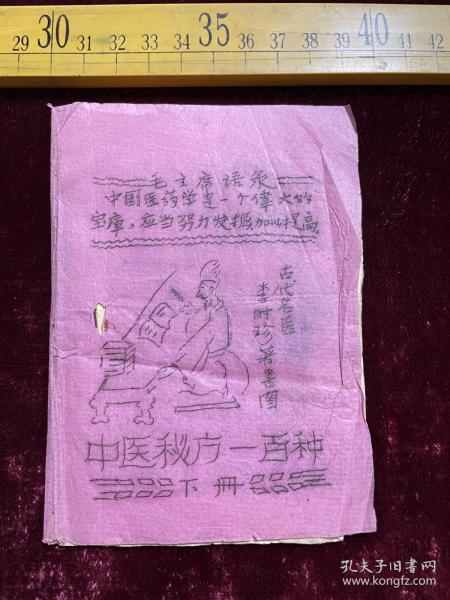 29 30 31 32 33 34 35 36 37 38 39 40 41 42
毛主席语录
中国医药学是一个偉大的
宝庫，应当努力发掘加以提高
古代名医
李时珍著書图
中医秘方一百种
下册
孔夫子旧书网
www.kongfz.com